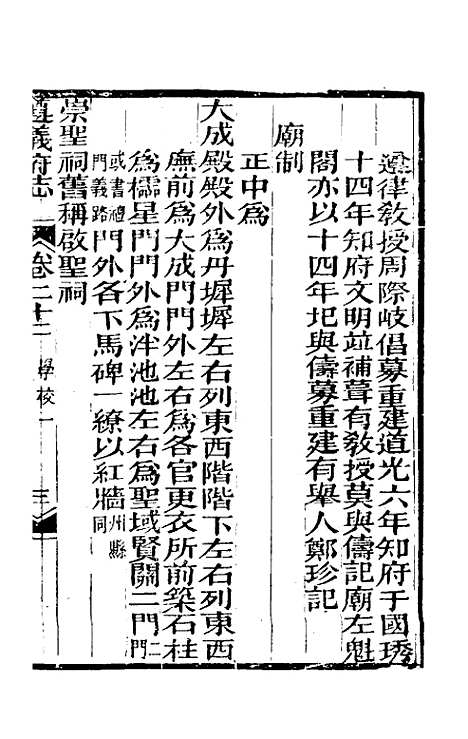 遵律教授周際岐倡募重建道光六年知府于國琇
十四年知府文明並補葺有敎授莫與儔記廟左魁
閣亦以十四年圮與儔募重建有舉人鄭珍記
廟制
正中爲
大成殿殿外爲丹墀墀左右列東西階階下左右列東西
廡前爲大成門門外左右爲各官更衣所前築石柱
爲櫺星門門外爲泮池池左右爲聖域賢關二門二門
或書禮門義路門外各下馬碑一繚以紅牆州縣同
崇聖祠舊稱啟聖祠
遵義府志 卷二十二 學校一 三